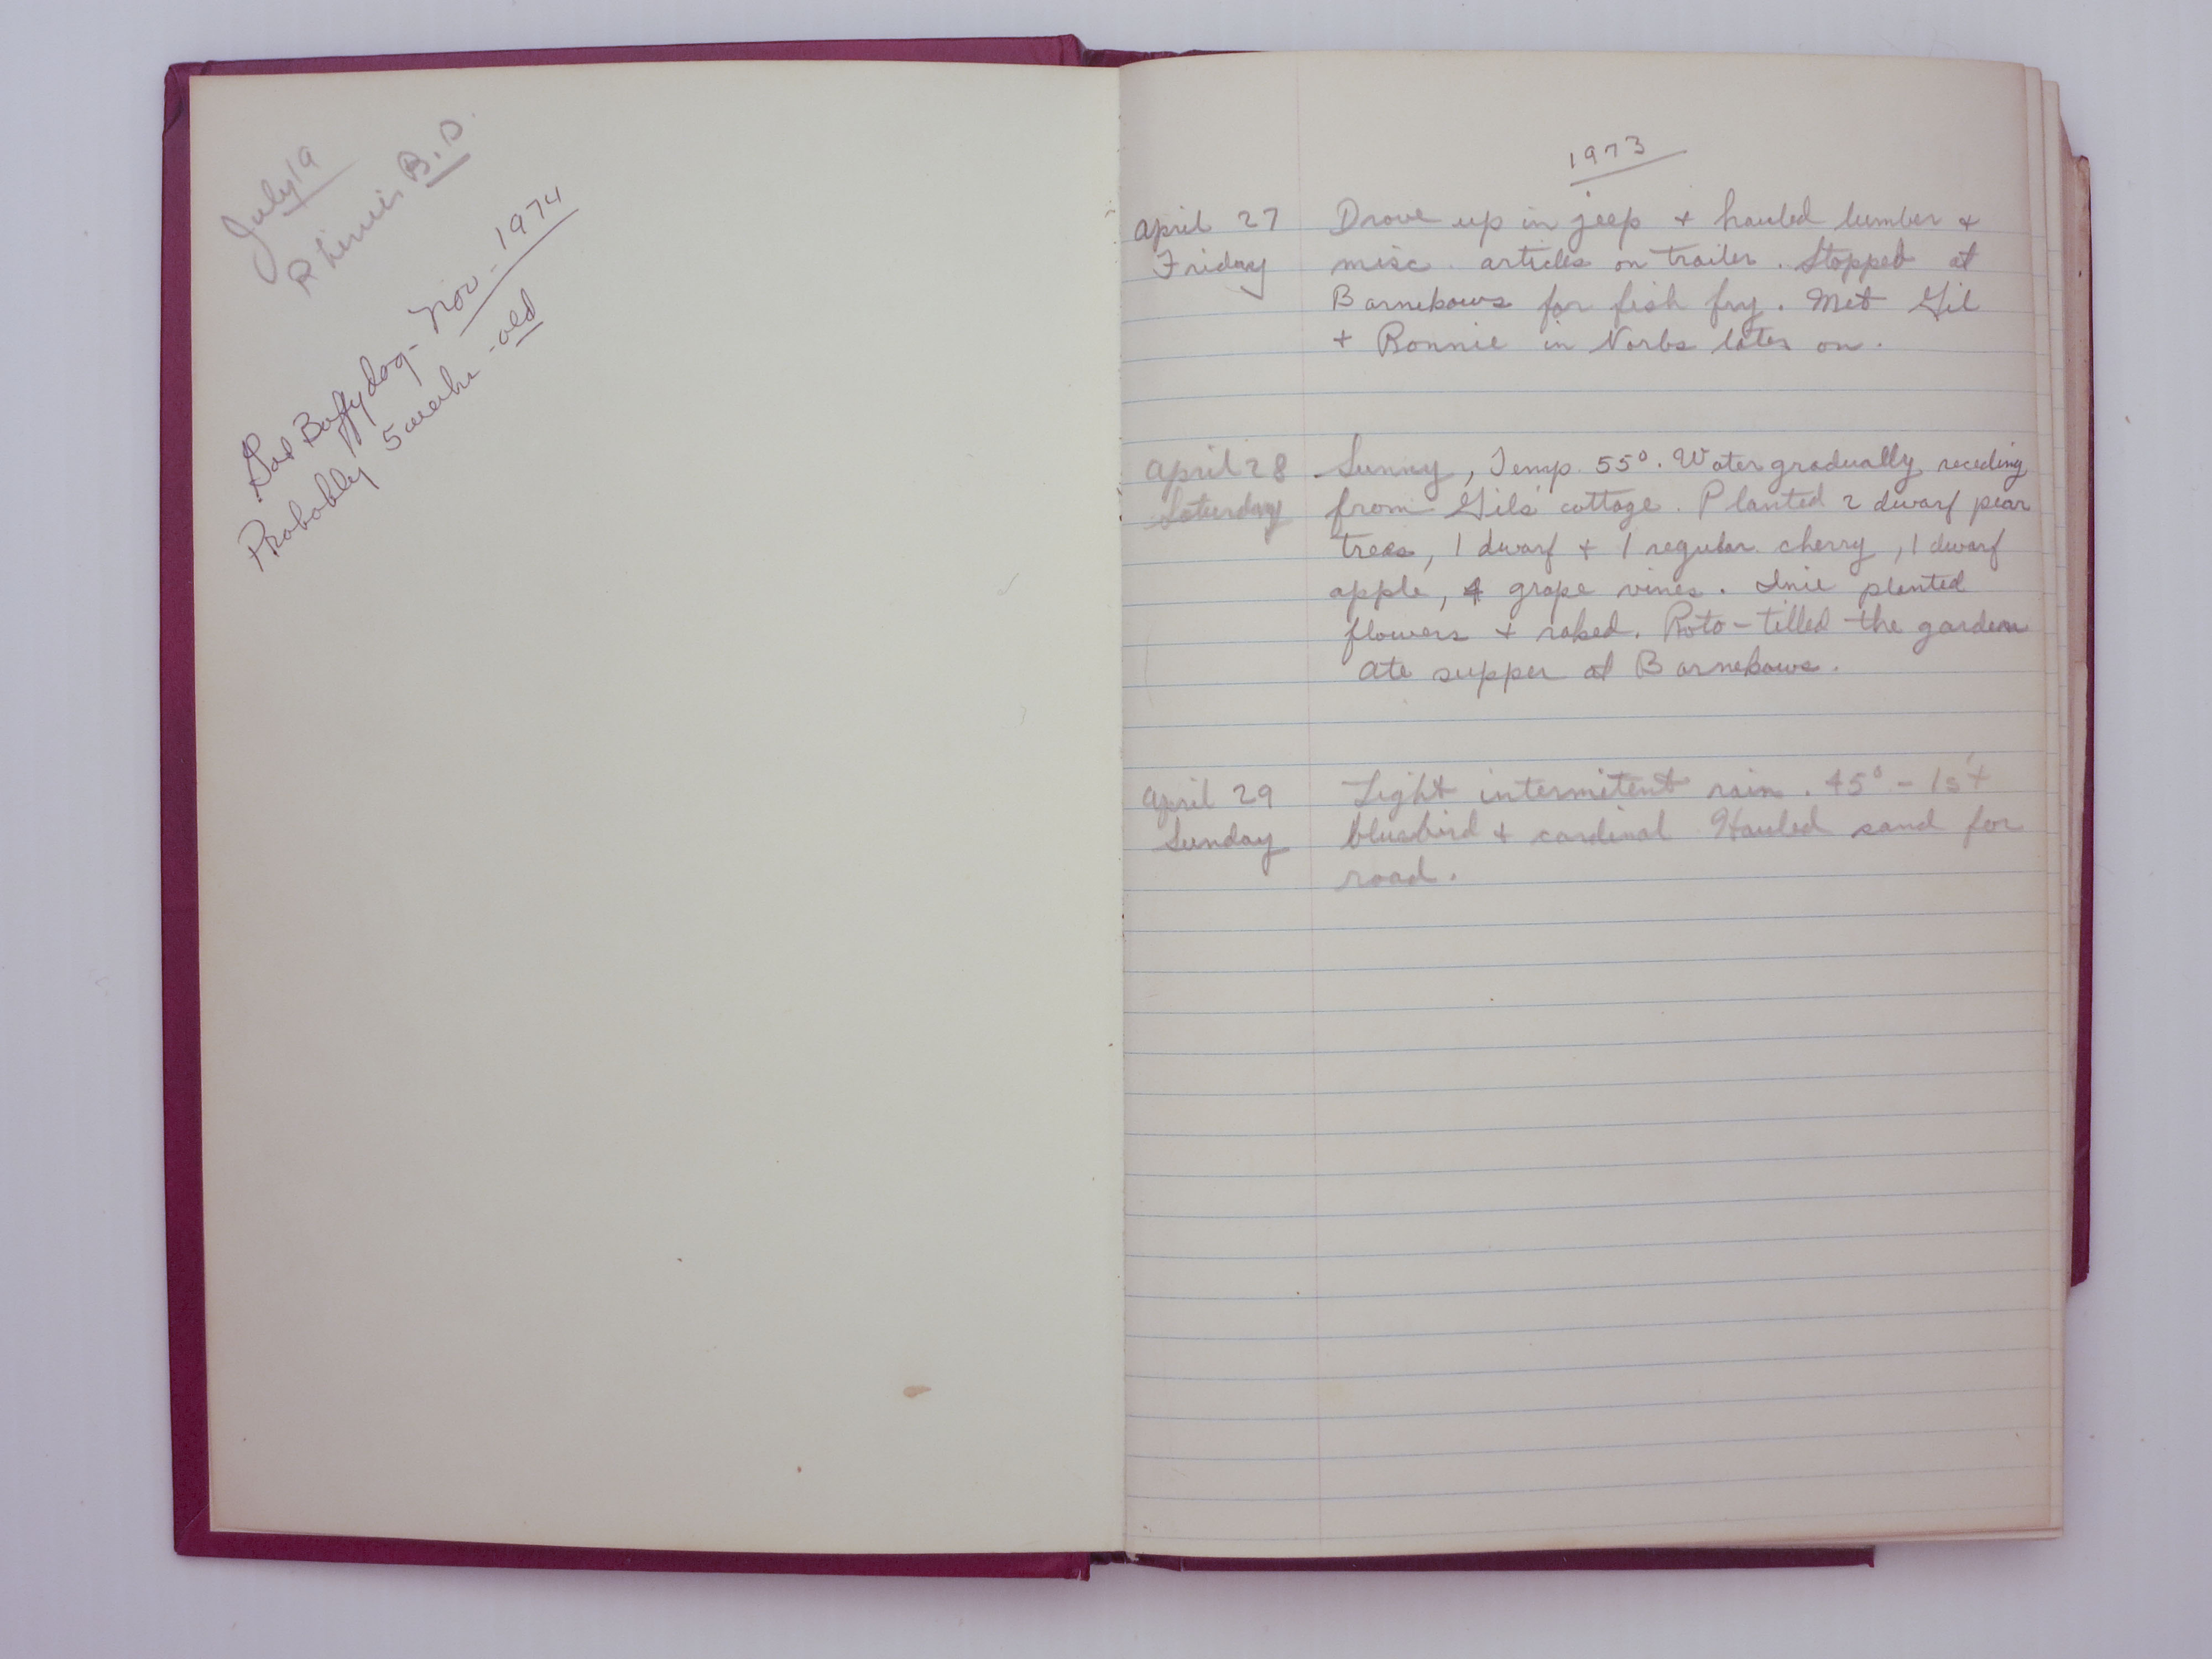 July 19
B.D.
Got Buffy dog - Nov - 1974
Probably 5 weeks - old
1973
April 27 Drove up in jeep + hauled lumber +
Friday misc. articles on trailer. Stopped at
Barnebows for fish fry. Met Gil
+ Ronnie in Norbs later on.
April 28 Sunny, Temp. 55°. Water gradually receding
Saturday from Gils' cottage. Planted 2 dwarf pear
trees, 1 dwarf + 1 regular cherry, 1 dwarf
apple, 4 grape vines. planted
flowers + raked. Roto-tilled the garden
Ate supper at Barnebows.
April 29 Light intermitent rain. 45° - 1st
Sunday bluebird + cardinal Hauled sand for
road.